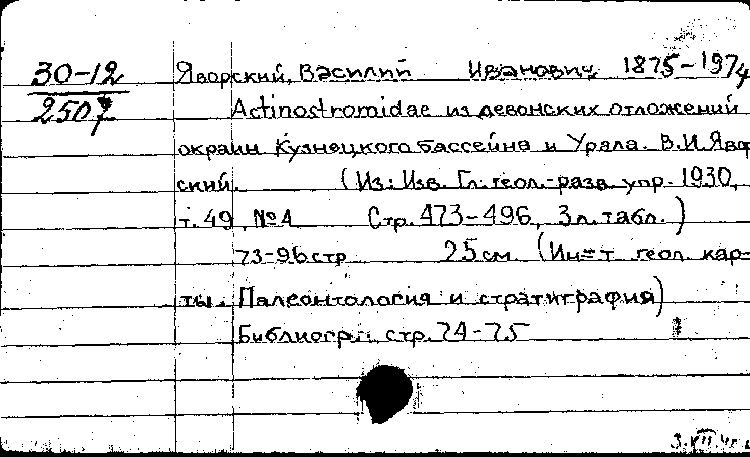 30-12
2507
Яворский, Василий Иванович 1875-1974
Actinostromidae из девонских отложений
окраин Кузнецкого бассейна и Урала. В.И.Явор
ский. (Из: Изв. Гл. геол.-разв. упр. 1930,
т. 49, №4 Стр. 473-496, 3 л. табл.)
73-96 стр 25 см (Ин-т геол. кар-
ты. Палеонтология и стратиграфия)
Библиогр.: стр. 74-75
3.VII.